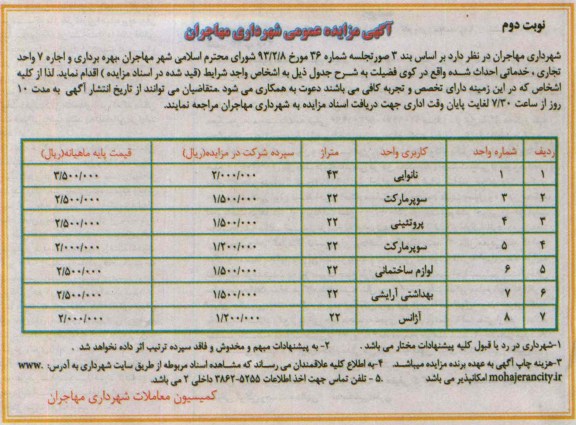 نوبت دوم
آگهی مزایده عمومی شهرداری مهاجران
شهرداری مهاجران در نظر دارد بر اساس بند ۳ صورتجلسه شماره ۳۶ مورخ ۹۳/۲/۸ شورای محترم اسلامی شهر مهاجران ،بهره برداری و اجاره ۷ واحد
تجاری ، خدماتی احداث شده واقع در کوی فضیلت به شرح جدول ذیل به اشخاص واجد شرایط (قید شده در اسناد مزایده ) اقدام نماید. لذا از کلیه
اشخاص که در این زمینه دارای تخصص و تجربه کافی می باشند دعوت به همکاری می شود .متقاضیان می توانند از تاریخ انتشار آگهی به مدت ۱۰
روز از ساعت ۷/۳۰ لغایت پایان وقت اداری جهت دریافت اسناد مزایده به شهرداری مهاجران مراجعه نمایند.
ردیف شماره واحد کاربری واحد متراژ سپرده شرکت در مزایده(ریال) قیمت پایه ماهیانه(ریال)
۱ ۱ نانوایی ۴۳ ۲/۰۰۰/۰۰۰ ۳/۵۰۰/۰۰۰
۲ ۳ سوپرمارکت ۲۲ ۱/۵۰۰/۰۰۰ ۲/۵۰۰/۰۰۰
۳ ۴ پروتئینی ۲۲ ۱/۵۰۰/۰۰۰ ۲/۵۰۰/۰۰۰
۴ ۵ سوپرمارکت ۲۲ ۱/۲۰۰/۰۰۰ ۲/۰۰۰/۰۰۰
۵ ۶ لوازم ساختمانی ۲۲ ۱/۵۰۰/۰۰۰ ۲/۵۰۰/۰۰۰
۶ ۷ بهداشتی آرایشی ۲۲ ۱/۵۰۰/۰۰۰ ۲/۵۰۰/۰۰۰
۷ ۸ آژانس ۲۲ ۱/۲۰۰/۰۰۰ ۲/۰۰۰/۰۰۰
۱-شهرداری در رد یا قبول کلیه پیشنهادات مختار می باشد . ۲- به پیشنهادات مبهم و مخدوش و فاقد سپرده ترتیب اثر داده نخواهد شد .
۳-هزینه چاپ آگهی به عهده برنده مزایده میباشد. ۴-به اطلاع کلیه علاقمندان می رساند که مشاهده اسناد مربوطه از طریق سایت شهرداری به آدرس: www.
mohajerancity.ir امکانپذیر می باشد .۵ - تلفن تماس جهت اخذ اطلاعات ۵۲۵۵-۳۸۶۲ داخلی ۲ می باشد.
کمیسیون معاملات شهرداری مهاجران